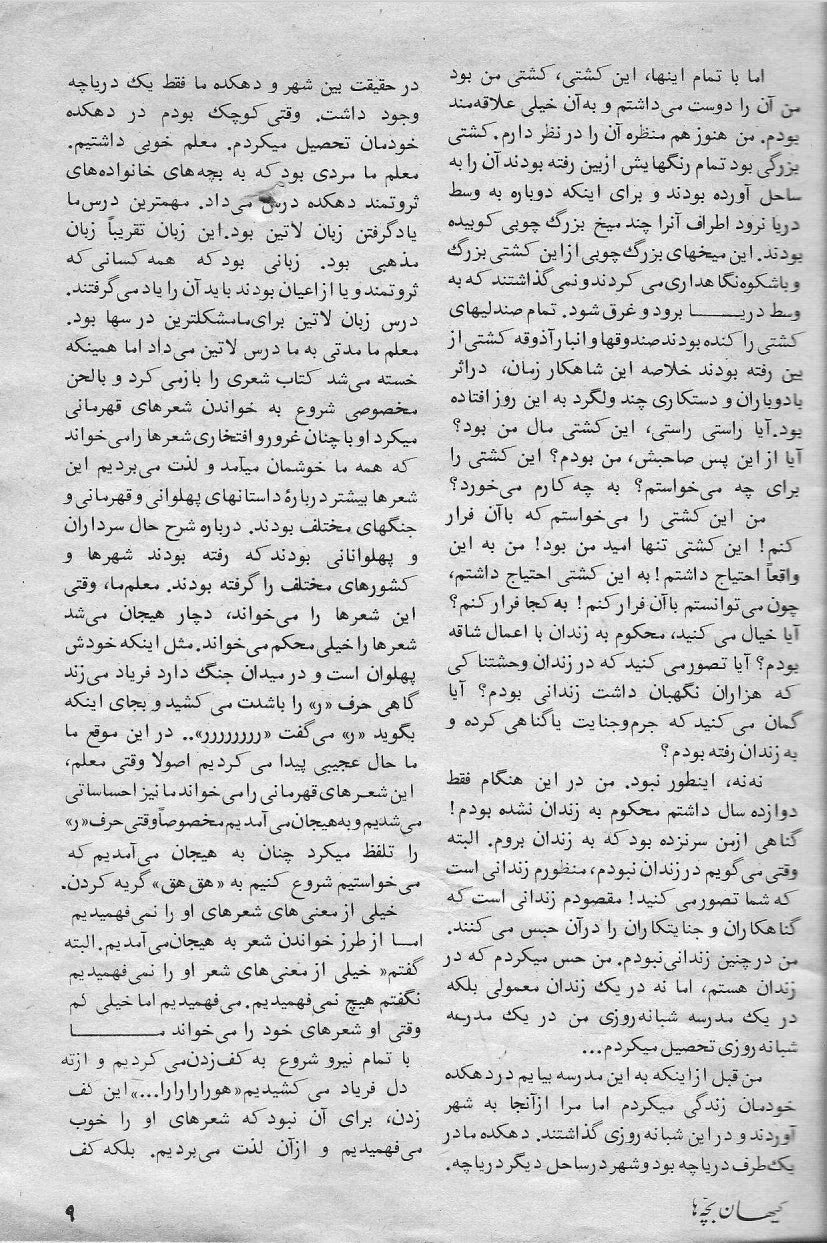 اما با تمام اینها، این کشتی، کشتی من بود
من آن را دوست می‌داشتم و به‌آن خیلی علاقه‌مند
بودم. من هنوز هم منظره آن را در نظر دارم. کشتی
بزرگی بود تمام رنگهایش ازبین رفته بودند آن را به
ساحل آورده بودند و برای اینکه دوباره به وسط
دریا نرود اطراف آنرا چند میخ بزرگ چوبی کوبیده
بودند. این میخهای بزرگ چوبی از این کشتی بزرگ
و باشکوه نگاهداری می‌کردند و نمی‌گذاشتند که به
وسط دریـــا برود و غرق شود. تمام صندلیهای
کشتی را کنده بودند صندوقها و انبار آذوقه کشتی از
بین رفته بودند خلاصه این شاهکار زمان، دراثر
بادوباران و دستکاری چند ولگرد به این روز افتاده
بود. آیا راستی راستی، این کشتی مال من بود؟
آیا از این پس صاحبش، من بودم؟ این کشتی را
برای چه می‌خواستم؟ به چه کارم می‌خورد؟
من این کشتی را می‌خواستم که باآن فرار
کنم! این کشتی تنها امید من بود! من به این
واقعاً احتیاج داشتم! به این کشتی احتیاج داشتم،
چون می‌توانستم باآن فرار کنم! به کجا فرار کنم؟
آیا خیال می‌کنید، محکوم به زندان با اعمال شاقه
بودم؟ آیا تصور می‌کنید که در زندان وحشتناکی
که هزاران نگهبان داشت زندانی بودم؟ آیا
گمان می‌کنید که جرم‌وجنایت یاگناهی کرده و
به زندان رفته بودم؟
نه‌نه، اینطور نبود. من در این هنگام فقط
دوازده سال داشتم محکوم به زندان نشده بودم!
گناهی ازمن سرنزده بود که به زندان بروم. البته
وقتی می‌گویم در زندان نبودم، منظورم زندانی است
که شما تصور می‌کنید! مقصودم زندانی است که
گناهکاران و جنایتکاران را درآن حبس می‌کنند.
من در چنین زندانی نبودم. من حس میکردم که در
زندان هستم، اما نه در یک زندان معمولی بلکه
در یک مدرسه شبانه‌روزی من در یک مدرسه
شبانه روزی تحصیل میکردم...
من قبل از اینکه به این مدرسه بیایم در دهکده
خودمان زندگی میکردم اما مرا ازآنجا به شهر
آوردند و در این شبانه روزی گذاشتند. دهکده مادر
یک‌طرف دریاچه بود و شهر در ساحل دیگر دریاچه.
در حقیقت بین شهر و دهکده ما فقط یک دریاچه
وجود داشت. وقتی کوچک بودم در دهکده
خودمان تحصیل میکردم. معلم خوبی داشتیم.
معلم ما مردی بود که به بچه‌های خانواده‌های
ثروتمند دهکده درس می‌داد. مهمترین درس‌ما
یادگرفتن زبان لاتین بود. این زبان تقریباً زبان
مذهبی بود. زبانی بود که همه کسانی که
ثروتمند و یا از اعیان بودند باید آن را یاد می‌گرفتند.
درس زبان لاتین برای‌ما مشکلترین درسها بود.
معلم ما مدتی به ما درس لاتین می‌داد اما همینکه
خسته می‌شد کتاب شعری را بازمی‌کرد و بالحن
مخصوصی شروع به خواندن شعرهای قهرمانی
میکرد او با چنان غرور و افتخاری شعرها را می‌خواند
که همه ما خوشمان میآمد و لذت می‌بردیم این
شعرها بیشتر دربارهٔ داستانهای پهلوانی و قهرمانی و
جنگهای مختلف بودند. درباره شرح حال سرداران
و پهلوانانی بودند که رفته بودند شهرها و
کشورهای مختلف را گرفته بودند. معلم‌ما، وقتی
این شعرها را می‌خواند، دچار هیجان می‌شد
شعرها را خیلی محکم می‌خواند. مثل اینکه خودش
پهلوان است و در میدان جنگ دارد فریاد می‌زند
گاهی حرف «ر» را باشدت می کشید و بجای اینکه
بگوید «ر» می‌گفت «رررررررر».. در این موقع ما
ما حال عجیبی پیدا می کردیم اصولا وقتی معلم،
این شعرهای قهرمانی را می‌خواند ما نیز احساساتی
می‌شدیم و به هیجان می‌آمدیم مخصوصاً وقتی حرف «ر»
را تلفظ میکرد چنان به هیجان می‌آمدیم که
می‌خواستیم شروع کنیم به «هق هق» گریه کردن.
خیلی از معنی های شعرهای او را نمی‌فهمیدیم
امـا از طرز خواندن شعر به هیجان می‌آمدیم. البته
گفتم« خیلی از معنی‌های شعر او را نمی‌فهمیدیم
نگفتم هیچ نمی‌فهمیدیم. می‌فهمیدیم اما خیلی کم
وقتی او شعرهای خود را می‌خواند مـــــا
با تمام نیرو شروع به کف‌زدن‌می کردیم و ازته
دل فریاد می کشیدیم «هورارارارا...» این کف
زدن، برای آن نبود که شعرهای او را خوب
می‌فهمیدیم و ازآن لذت می‌بردیم. بلکه کف
کیهان بچه‌ها
۹